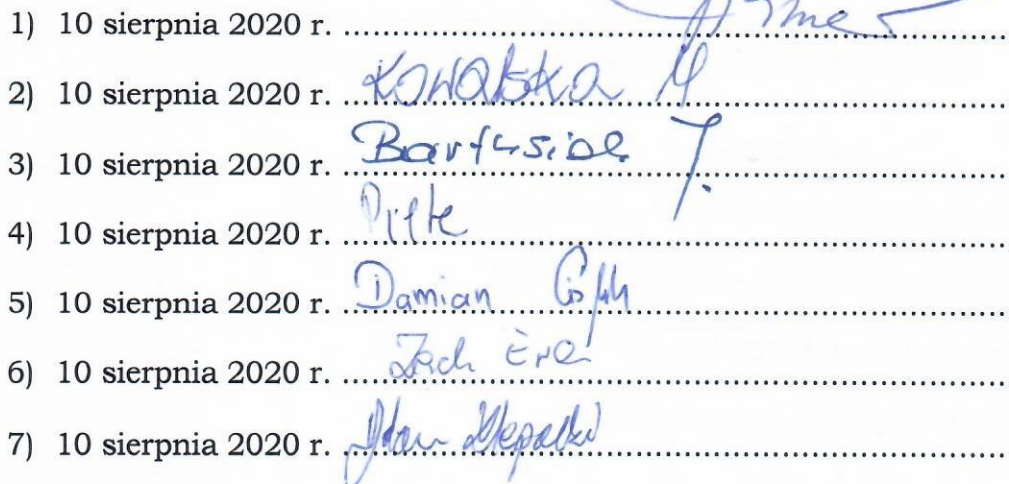 1) 10 sierpnia 2020 r. ....................
2) 10 sierpnia 2020 r. Kowalska M
3) 10 sierpnia 2020 r. Bartusiak J.
4) 10 sierpnia 2020 r. ....................
5) 10 sierpnia 2020 r. Damian
6) 10 sierpnia 2020 r. Zach Ewa
7) 10 sierpnia 2020 r. Adam